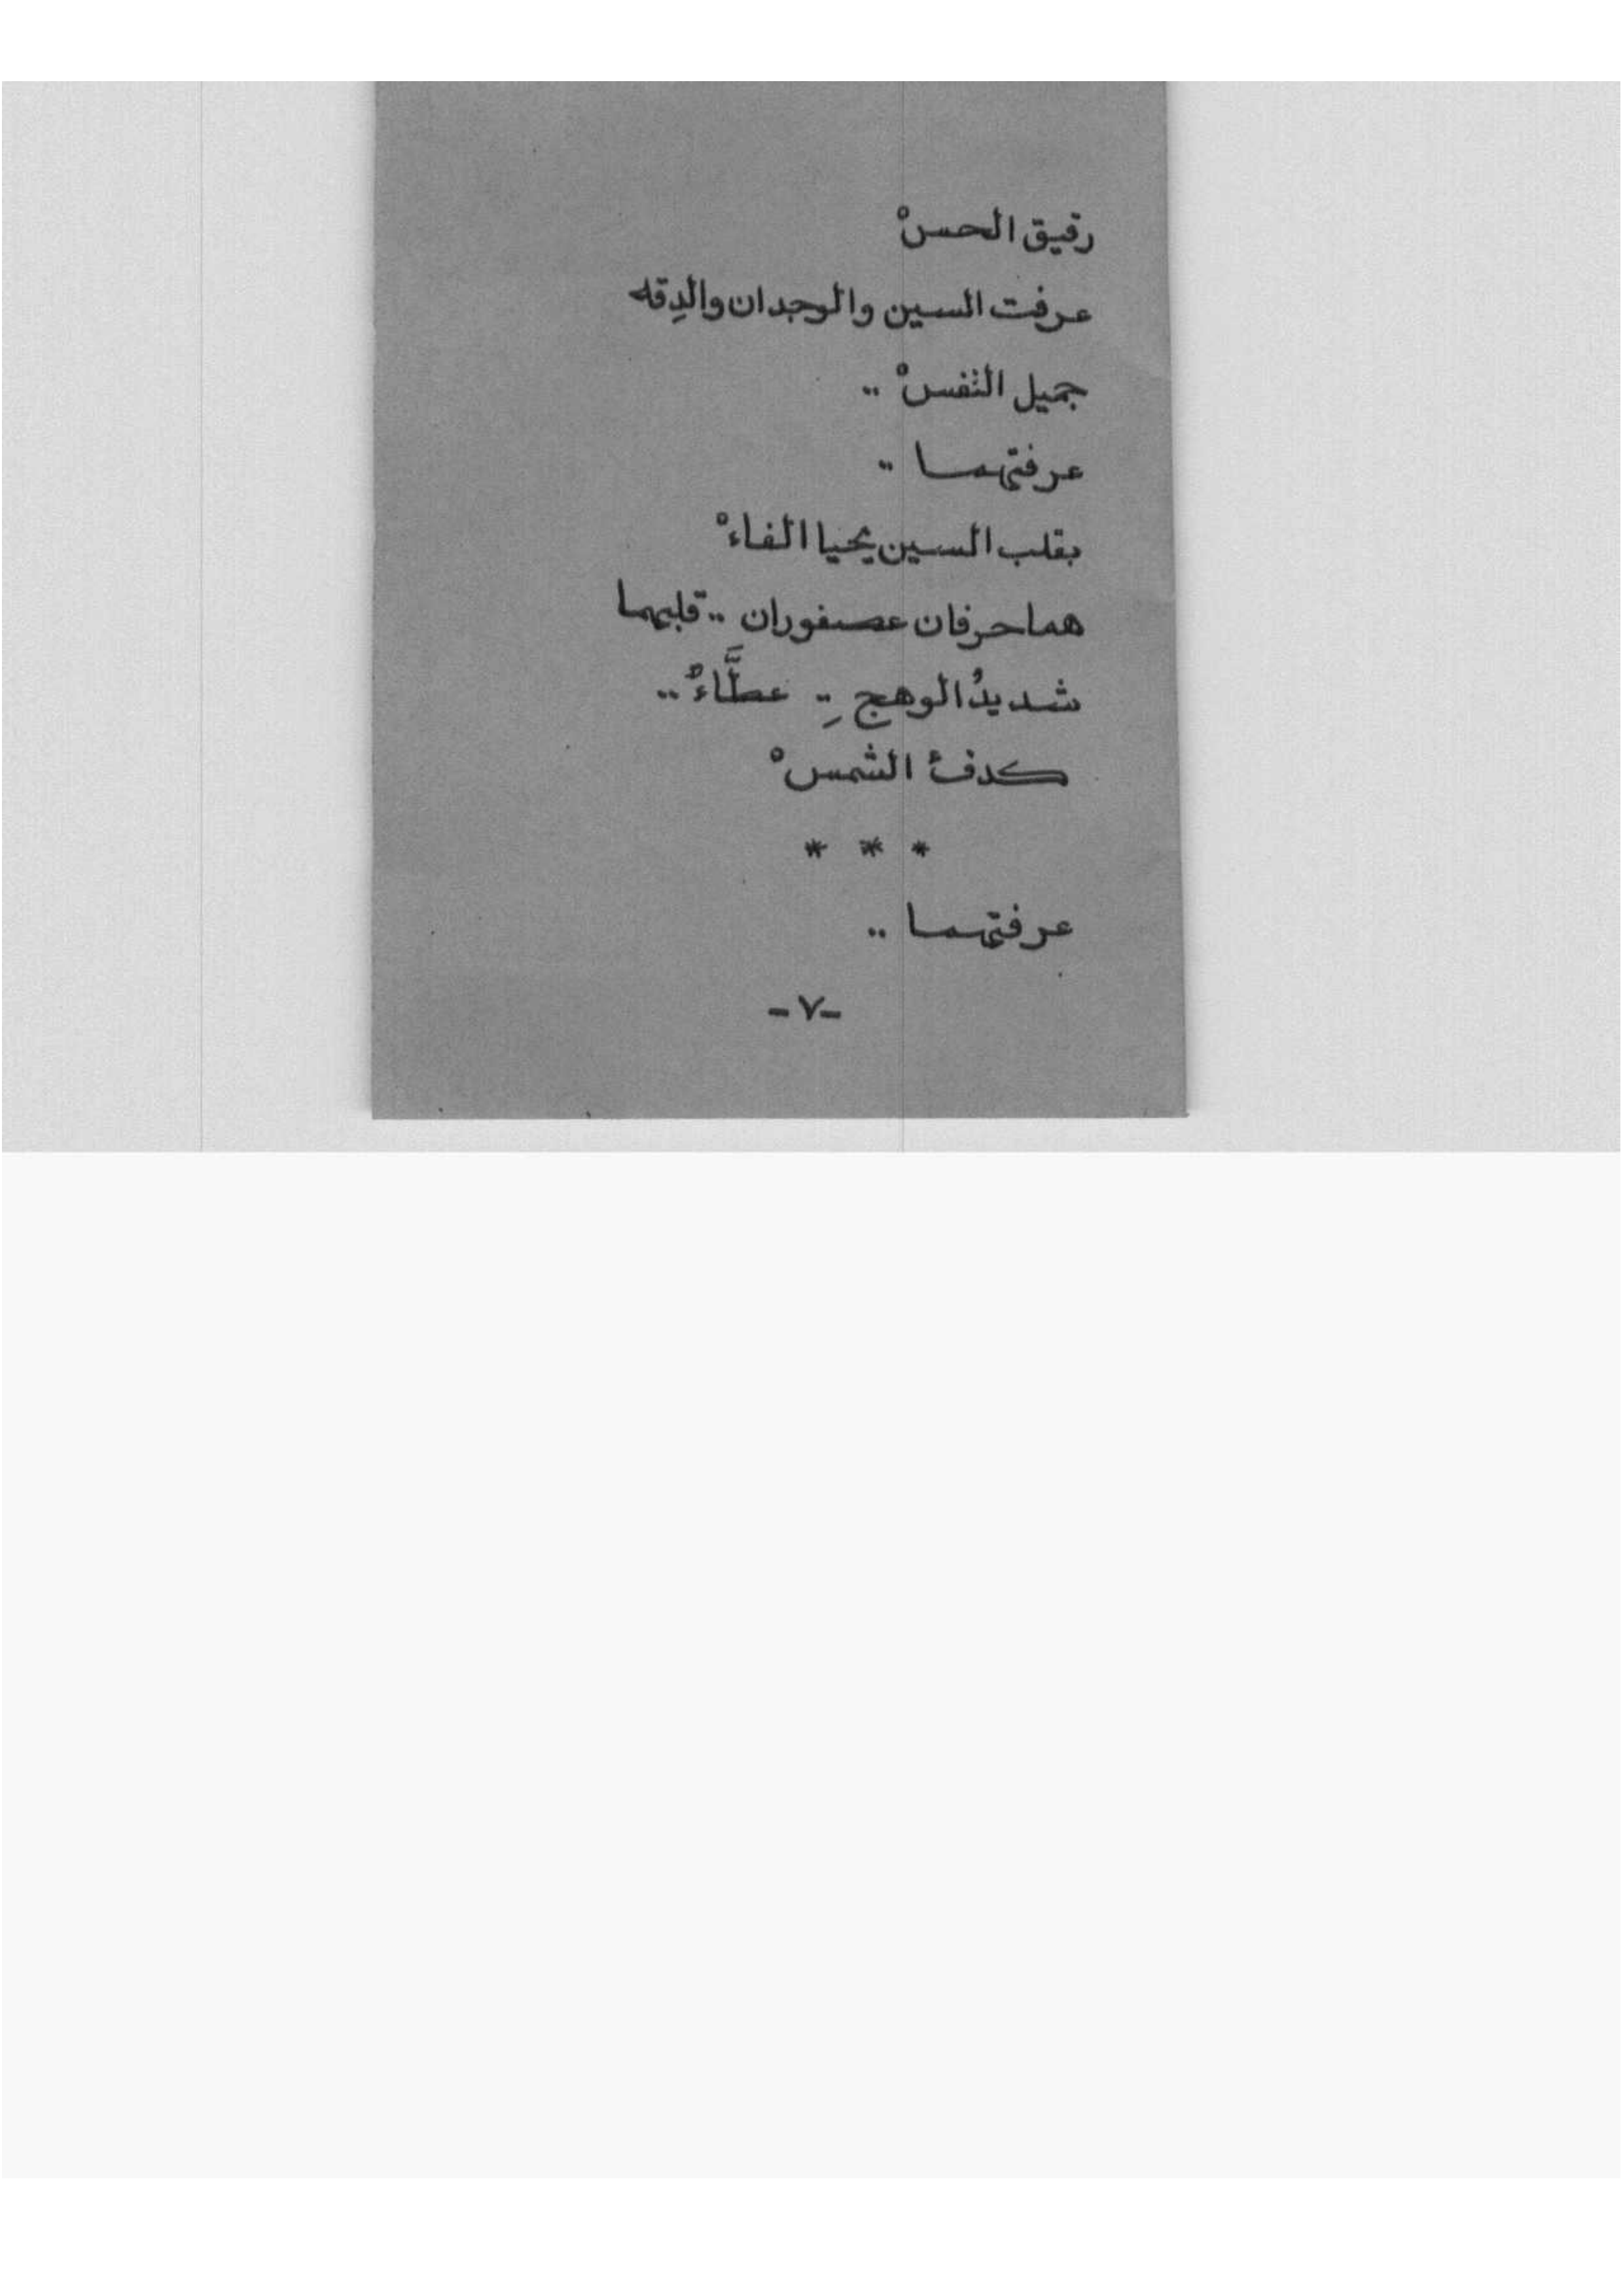 رقيق الحسْ
عرفت السين والوجدان والدِقه
جميل النفسْ ..
عرفتهما ..
بقلب السين يحيا الفاءْ
هما حرفان عصفوران .. قلبهما
شديدُ الوهج .. عطَّاءٌ ..
كدفئ الشمسْ
* * *
عرفتهما ..
-٧-